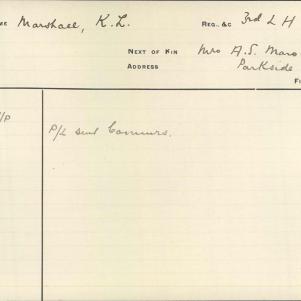 ME Marshall, K.L. REG., &C 3rd L H
NEXT OF KIN Mrs A.S. Mars
ADDRESS Parkside
F
/P P/L sent Commrs.